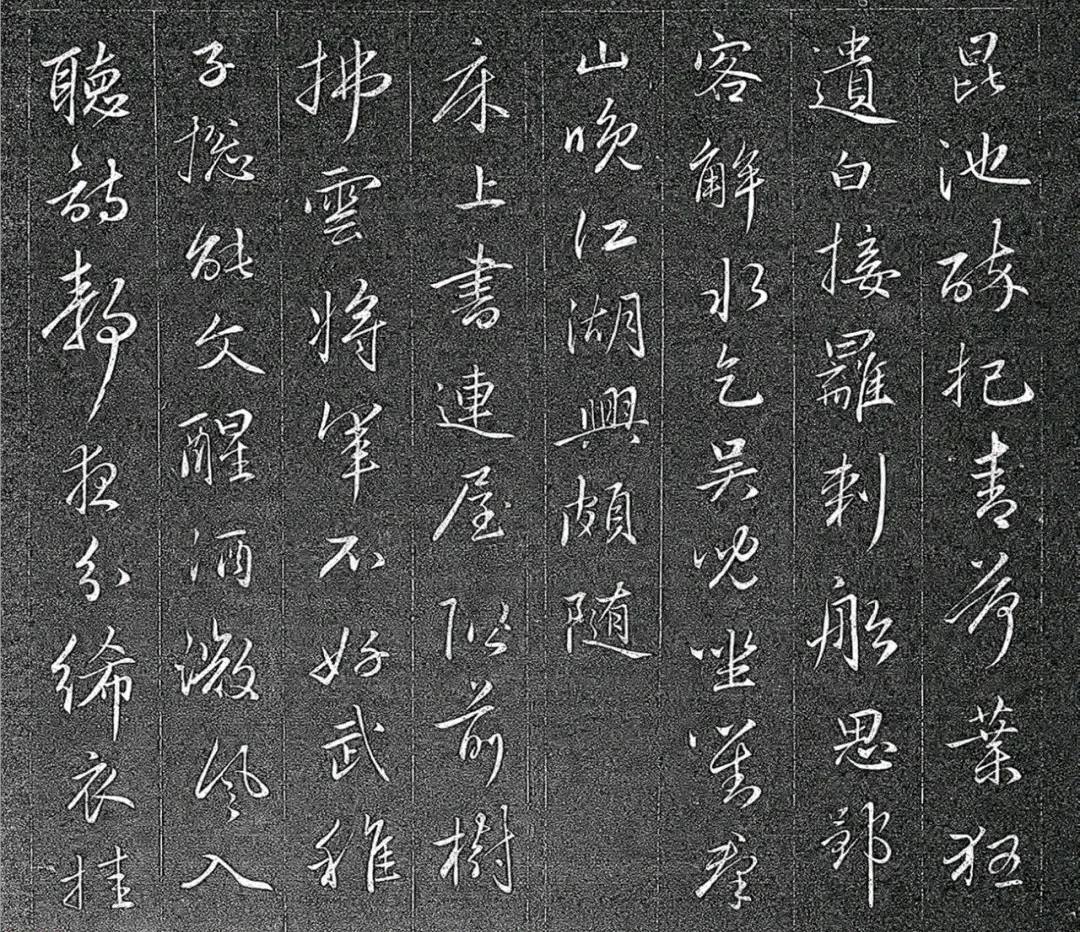 昆池醉把青荷葉狂
遺白接䍦刺船思郢
客解水乞吳兒坐對秦
山晚江湖興頗隨
床上書連屋階前樹
拂雲將軍不好武稚
子總能文醒酒微風入
聽詩靜夜分絺衣挂